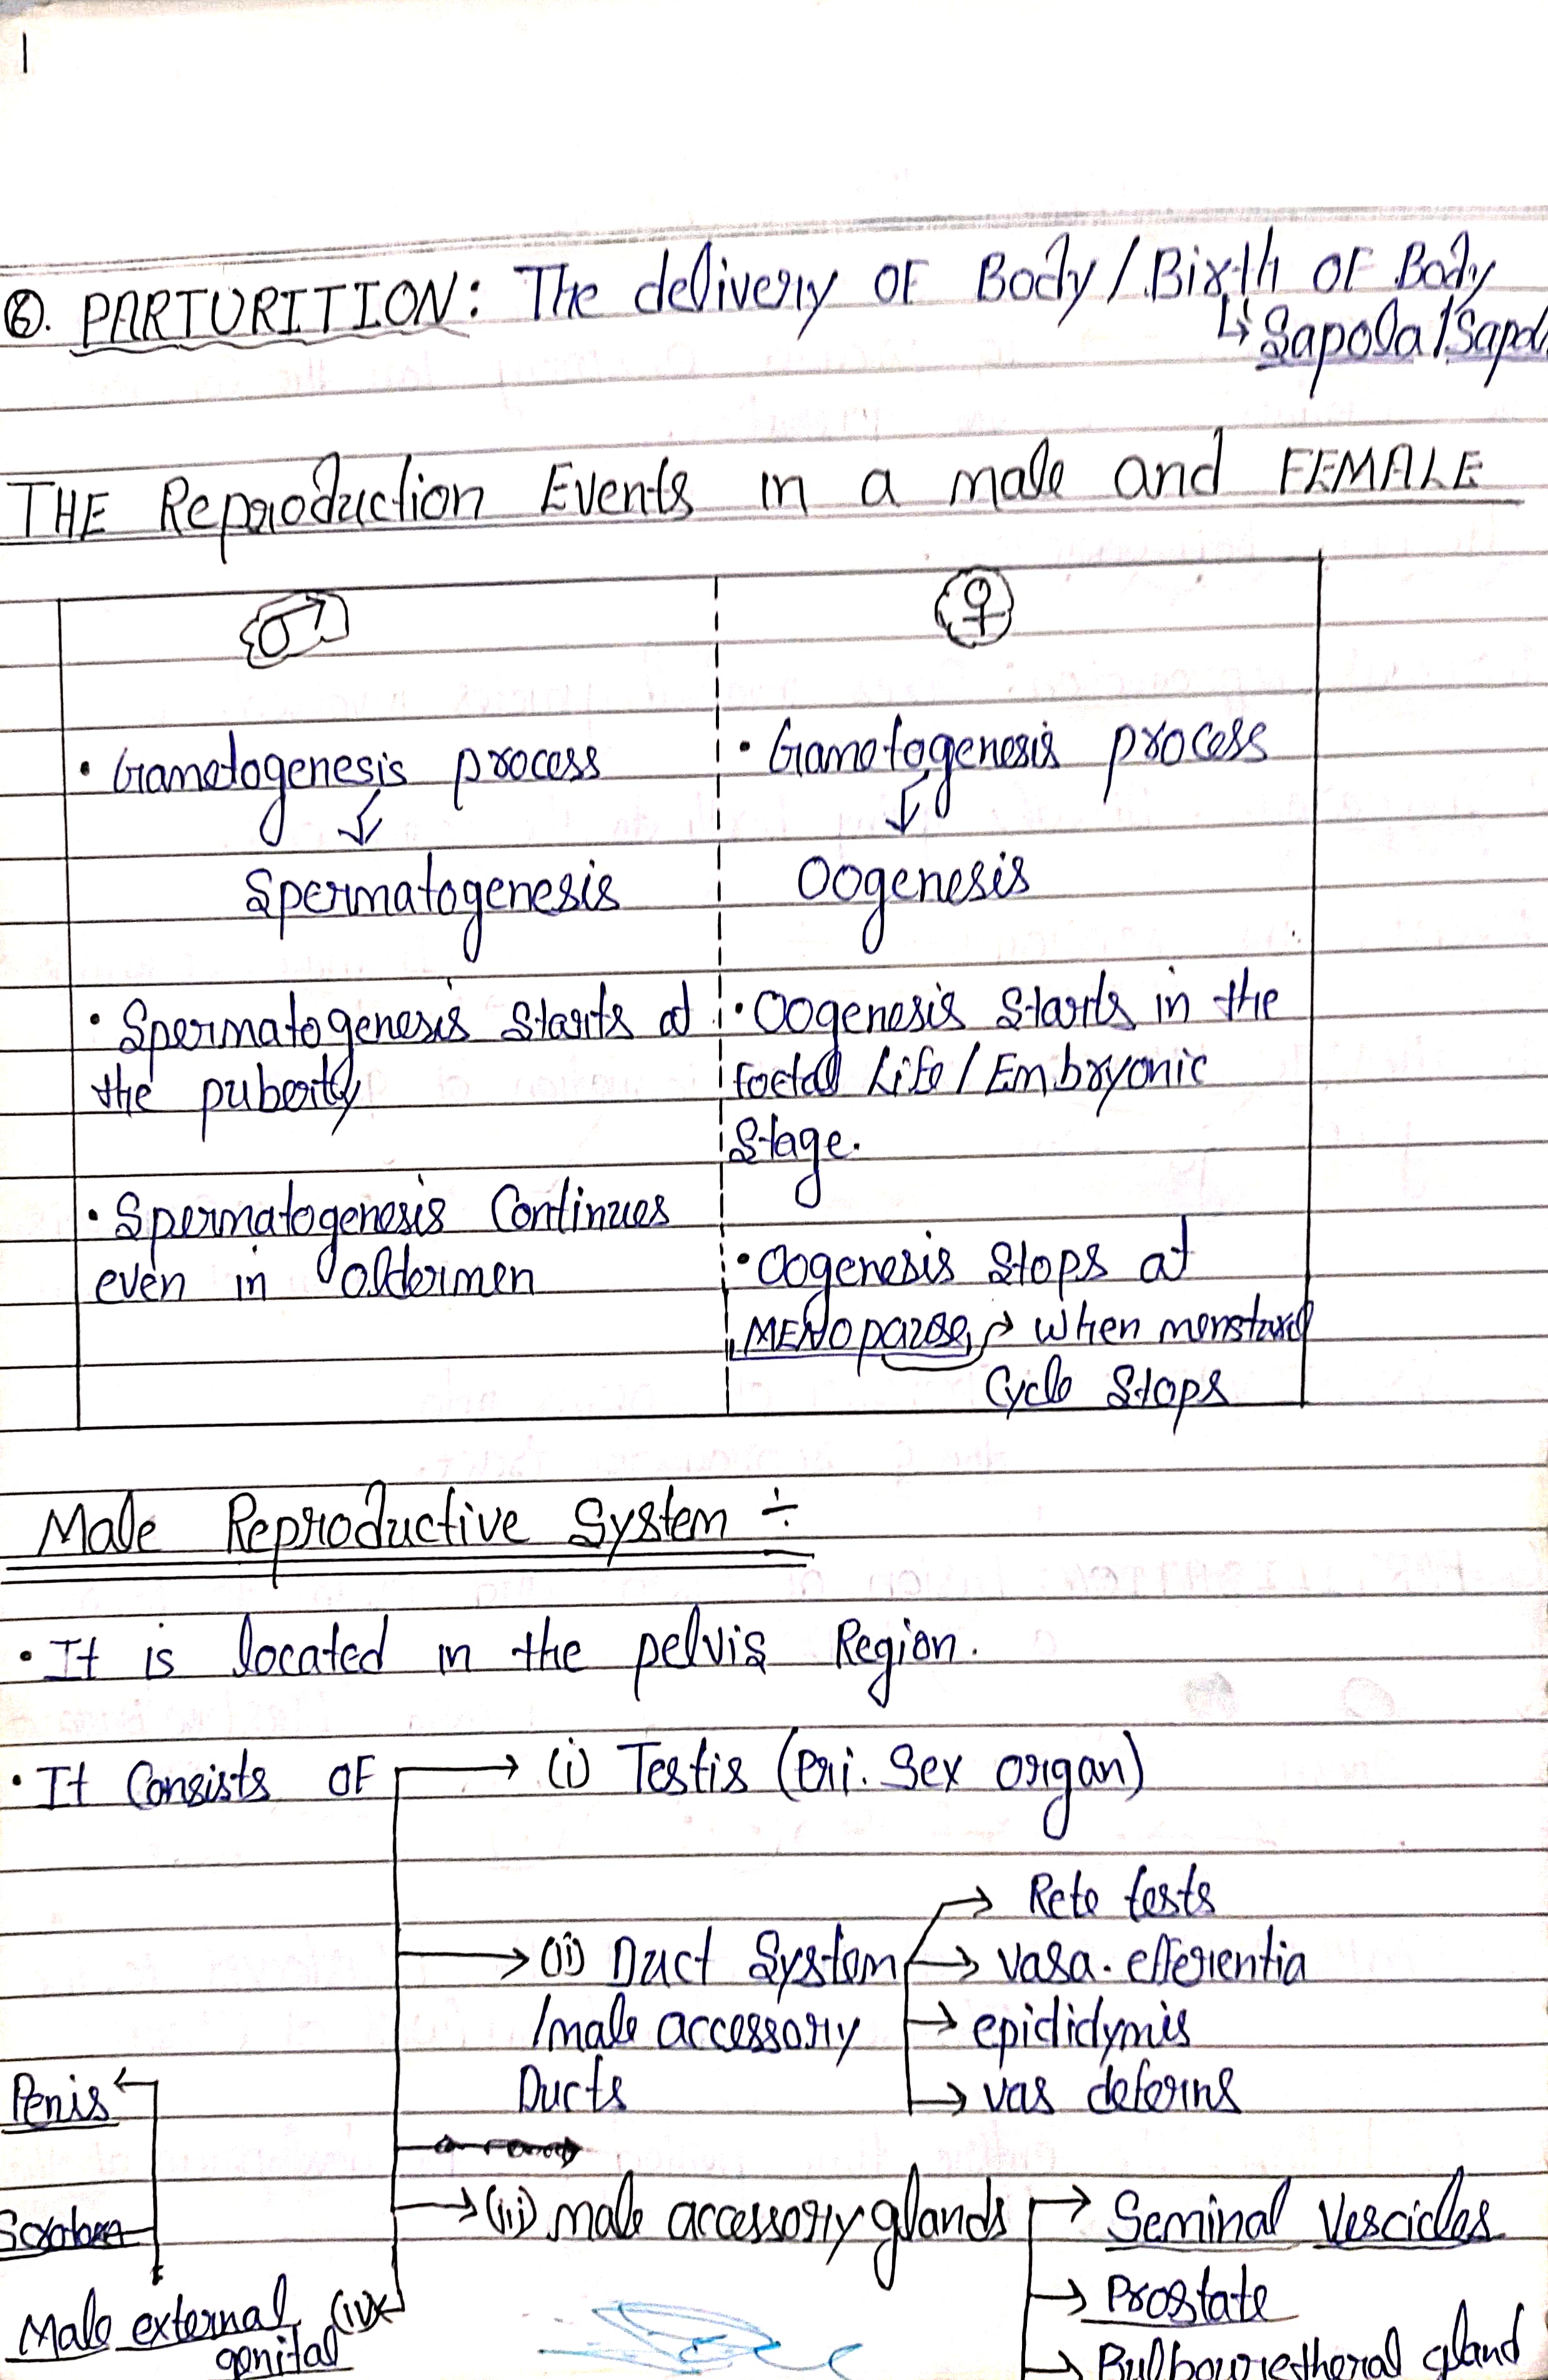 1
⑥. PARTURITION: The delivery OF Body / Birth OF Body
THE Reproduction Events in a male and FEMALE
♂
♀
• Gametogenesis process
↓
Spermatogenesis
• Spermatogenesis Starts at
the puberty
• Spermatogenesis Continues
even in oldermen
• Gametogenesis process
↓
Oogenesis
• Oogenesis Starts in the
foetal Life / Embryonic
Stage.
• Oogenesis Stops at
MENOpause, → when menstural
Cycle Stops
Male Reproductive System ÷
• It is located in the pelvis Region.
• It Consists OF → (i) Testis (Pri. Sex organ)
→ (ii) Duct System
/male accessory
Ducts
→ Rete tests
→ vasa. efferentia
→ epididymis
→ vas deferns
→ (iii) male accessory glands
→ Seminal Vescicles
→ Prostate
→ Bulbourethoral gland
Male external (iv)
genital
Penis